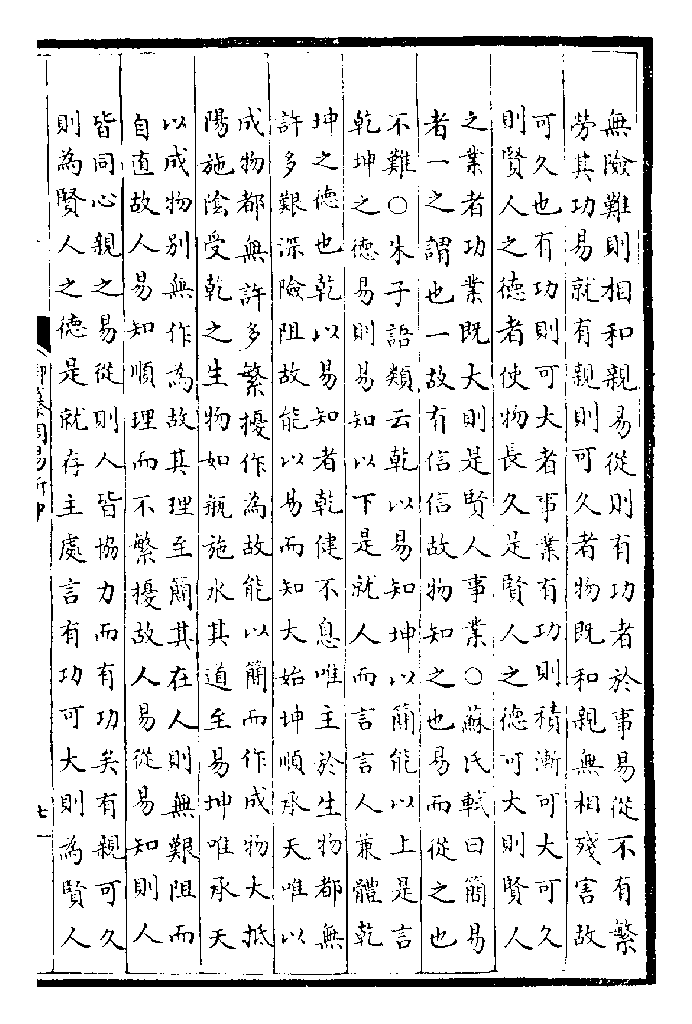 無險難則相和親易從則有功者於事易從不有繁
勞其功易就有親則可久者物既和親無相殘害故
可久也有功則可大者事業有功則積漸可大可久
則賢人之德者使物長久是賢人之德可大則賢人
之業者功業既大則是賢人事業○蘇氏軾曰簡易
者一之謂也一故有信信故物知之也易而從之也
不難○朱子語類云乾以易知坤以簡能以上是言
乾坤之德易則易知以下是就人而言言人兼體乾
坤之德也乾以易知者乾健不息唯主於生物都無
許多艱深險阻故能以易而知大始坤順承天唯以
成物都無許多繁擾作為故能以簡而作成物大抵
陽施陰受乾之生物如瓶施水其道至易坤唯承天
以成物別無作為故其理至簡其在人則無艱阻而
自直故人易知順理而不繁擾故人易從易知則人
皆同心親之易從則人皆協力而有功矣有親可久
則為賢人之德是就存主處言有功可大則為賢人
御纂周易折中
七